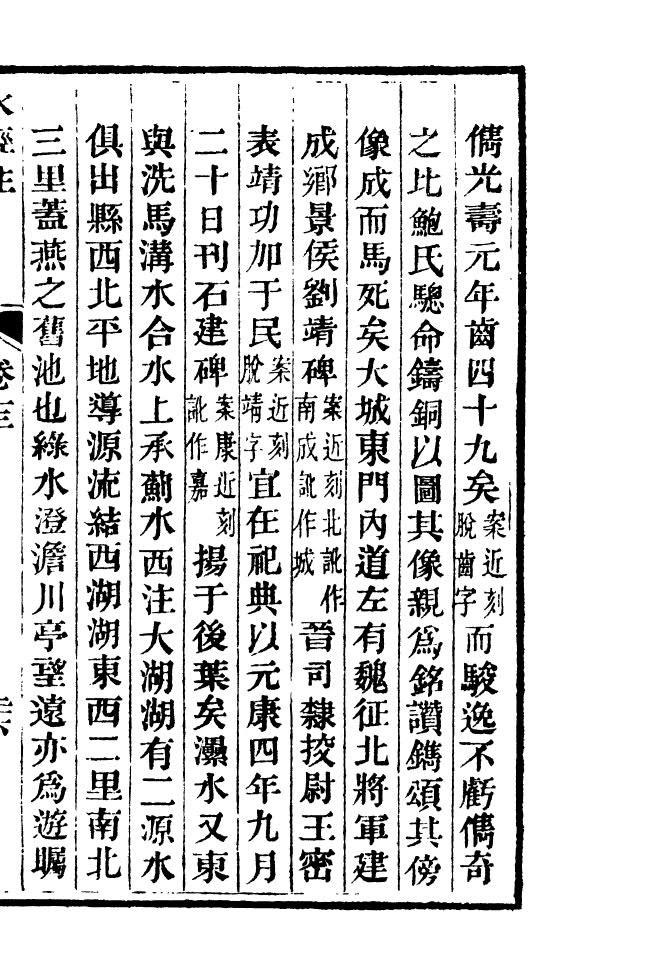 儁光壽元年齒四十九矣案近刻脫齒字而駿逸不虧儁奇
之比鮑氏驄命鑄銅以圖其像親爲銘讚鐫頌其傍
像成而馬死矣大城東門內道左有魏征北將軍建
成鄉景侯劉靖碑案近刻北訛作南成訛作城晉司隸挍尉王密
表靖功加于民案近刻脫靖字宜在祀典以元康四年九月
二十日刊石建碑案康近刻訛作嘉揚于後葉矣㶟水又東
與洗馬溝水合水上承薊水西注大湖湖有二源水
俱出縣西北平地導源流結西湖湖東西二里南北
三里蓋燕之舊池也綠水澄澹川亭望遠亦爲遊矚
水經注 卷十三